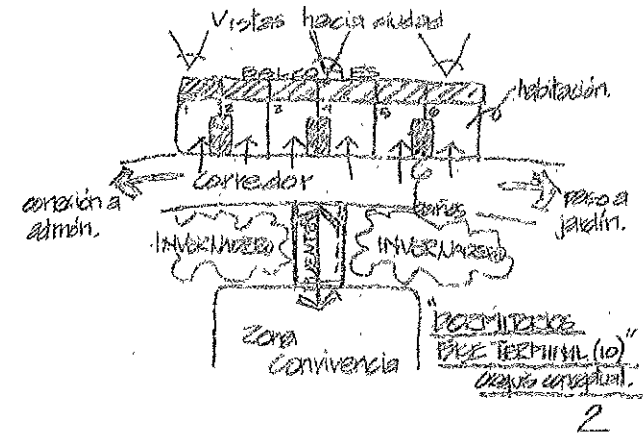 Vistas hacia ciudad
BALCONES
habitación.
1 2 3 4 5 6
corredor
6
baños
conexión a
admón.
paso a
jardín.
INVERNADERO
PUENTE
INVERNADERO
Zona
Convivencia
"DORMITORIOS
FASE TERMINAL (10)"
croquis conceptual.
2